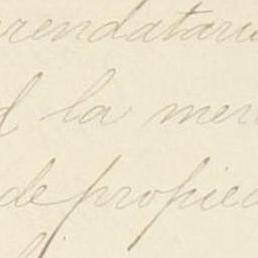 rendatari
d la mer
de propied